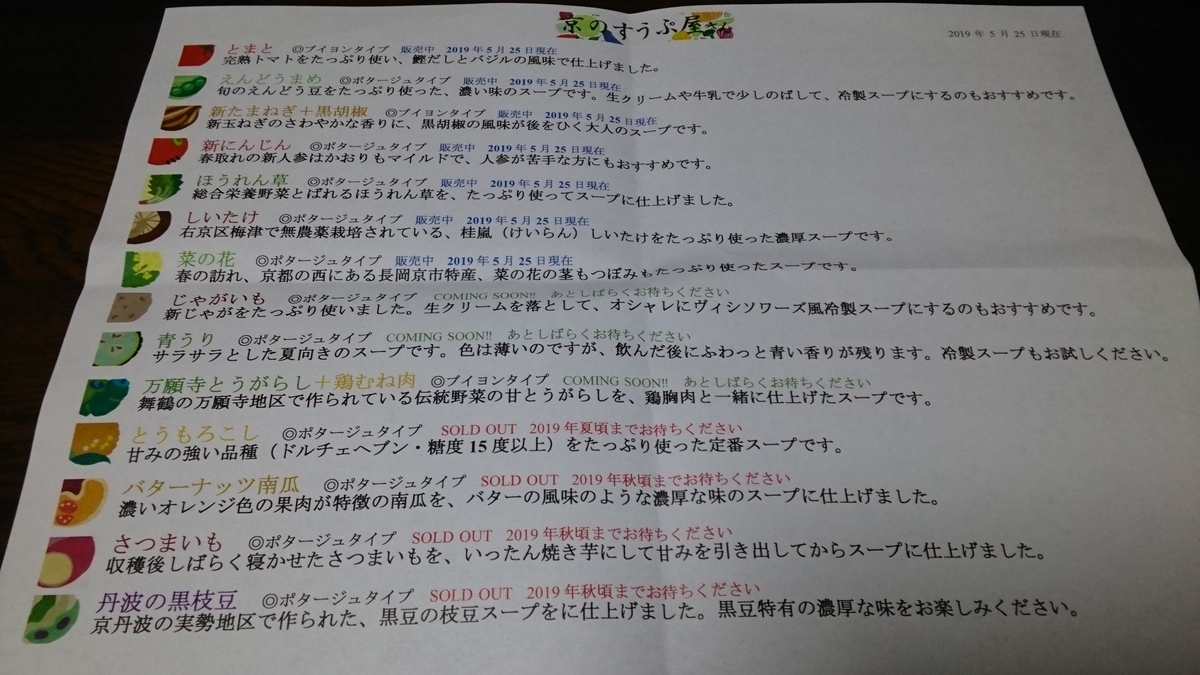 京のすうぷ屋さん
2019年5月25日現在
とまと ◎ブイヨンタイプ 販売中 2019年5月25日現在
完熟トマトをたっぷり使い、鰹だしとバジルの風味で仕上げました。
えんどうまめ ◎ポタージュタイプ 販売中 2019年5月25日現在
旬のえんどう豆をたっぷり使った、濃い味のスープです。生クリームや牛乳で少しのばして、冷製スープにするのもおすすめです。
新たまねぎ＋黒胡椒 ◎ブイヨンタイプ 販売中 2019年5月25日現在
新玉ねぎのさわやかな香りに、黒胡椒の風味が後をひく大人のスープです。
新にんじん ◎ポタージュタイプ 販売中 2019年5月25日現在
春取れの新人参はかおりもマイルドで、人参が苦手な方にもおすすめです。
ほうれん草 ◎ポタージュタイプ 販売中 2019年5月25日現在
総合栄養野菜とばれるほうれん草を、たっぷり使ってスープに仕上げました。
しいたけ ◎ポタージュタイプ 販売中 2019年5月25日現在
右京区梅津で無農薬栽培されている、桂嵐（けいらん）しいたけをたっぷり使った濃厚スープです。
菜の花 ◎ポタージュタイプ 販売中 2019年5月25日現在
春の訪れ、京都の西にある長岡京市特産、菜の花の茎もつぼみもたっぷり使ったスープです。
じゃがいも ◎ポタージュタイプ COMING SOON!! あとしばらくお待ちください
新じゃがをたっぷり使いました。生クリームを落として、オシャレにヴィシソワーズ風冷製スープにするのもおすすめです。
青うり ◎ポタージュタイプ COMING SOON!! あとしばらくお待ちください
サラサラとした夏向きのスープです。色は薄いのですが、飲んだ後にふわっと青い香りが残ります。冷製スープもお試しください。
万願寺とうがらし＋鶏むね肉 ◎ブイヨンタイプ COMING SOON!! あとしばらくお待ちください
舞鶴の万願寺地区で作られている伝統野菜の甘とうがらしを、鶏胸肉と一緒に仕上げたスープです。
とうもろこし ◎ポタージュタイプ SOLD OUT 2019年夏頃までお待ちください
甘みの強い品種（ドルチェヘブン・糖度15度以上）をたっぷり使った定番スープです。
バターナッツ南瓜 ◎ポタージュタイプ SOLD OUT 2019年秋頃までお待ちください
濃いオレンジ色の果肉が特徴の南瓜を、バターの風味のような濃厚な味のスープに仕上げました。
さつまいも ◎ポタージュタイプ SOLD OUT 2019年秋頃までお待ちください
収穫後しばらく寝かせたさつまいもを、いったん焼き芋にして甘みを引き出してからスープに仕上げました。
丹波の黒枝豆 ◎ポタージュタイプ SOLD OUT 2019年秋頃までお待ちください
京丹波の実勢地区で作られた、黒豆の枝豆スープをに仕上げました。黒豆特有の濃厚な味をお楽しみください。